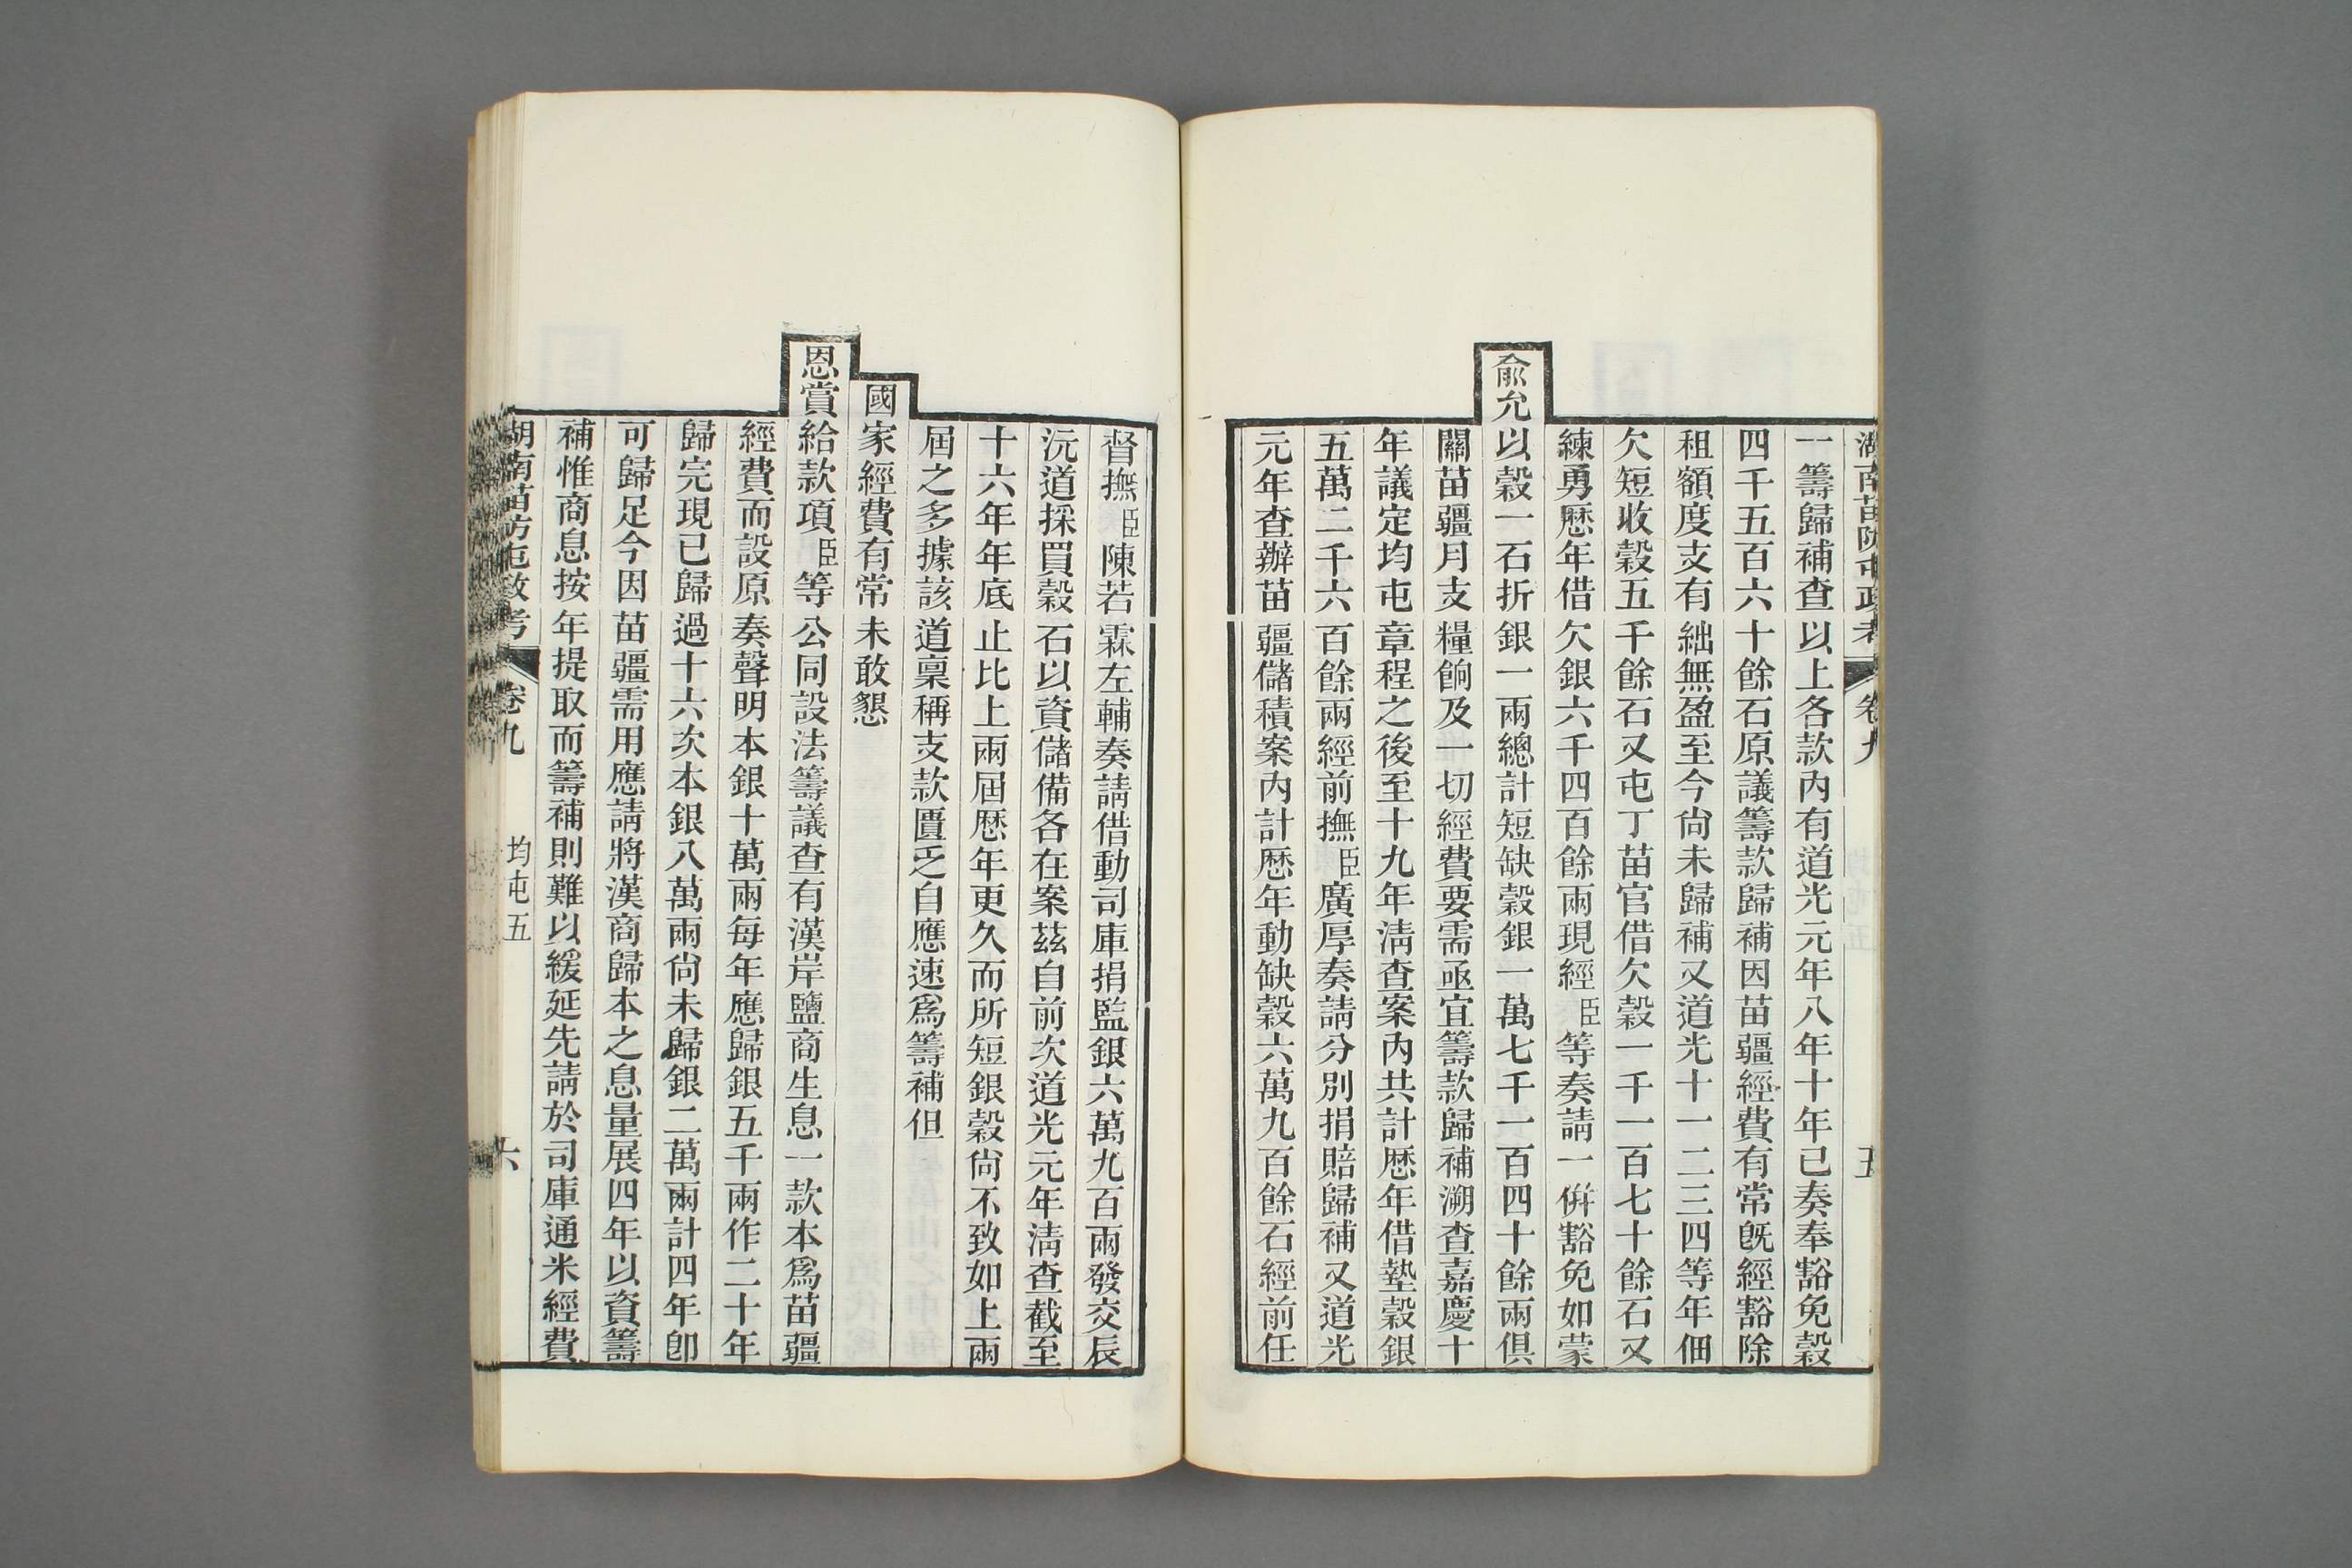 湖南苗防屯政考 卷九 五
一籌歸補查以上各款內有道光元年八年十年已奏奉豁免穀
四千五百六十餘石原議籌款歸補因苗疆經費有常旣經豁除
租額度支有絀無盈至今尙未歸補又道光十一二三四等年佃
欠短收穀五千餘石又屯丁苗官借欠穀一千一百七十餘石又
練勇歷年借欠銀六千四百餘兩現經臣等奏請一倂豁免如蒙
兪允以穀一石折銀一兩總計短缺穀銀一萬七千一百四十餘兩俱
關苗疆月支糧餉及一切經費要需亟宜籌款歸補溯查嘉慶十
年議定均屯章程之後至十九年淸查案內共計歷年借墊穀銀
五萬二千六百餘兩經前撫臣廣厚奏請分別捐賠歸補又道光
元年查辦苗疆儲積案內計歷年動缺穀六萬九百餘石經前任
督撫臣陳若霖左輔奏請借動司庫捐監銀六萬九百兩發交辰
沅道採買穀石以資儲備各在案茲自前次道光元年淸查截至
十六年年底止比上兩屆歷年更久而所短銀穀尙不致如上兩
屆之多據該道稟稱支款匱乏自應速爲籌補但
國家經費有常未敢懇
恩賞給款項臣等公同設法籌議查有漢岸鹽商生息一款本爲苗疆
經費而設原奏聲明本銀十萬兩每年應歸銀五千兩作二十年
歸完現已歸過十六次本銀八萬兩尙未歸銀二萬兩計四年卽
可歸足今因苗疆需用應請將漢商歸本之息量展四年以資籌
補惟商息按年提取而籌補則難以緩延先請於司庫通米經費
湖南苗防屯政考 卷九 均屯五 六